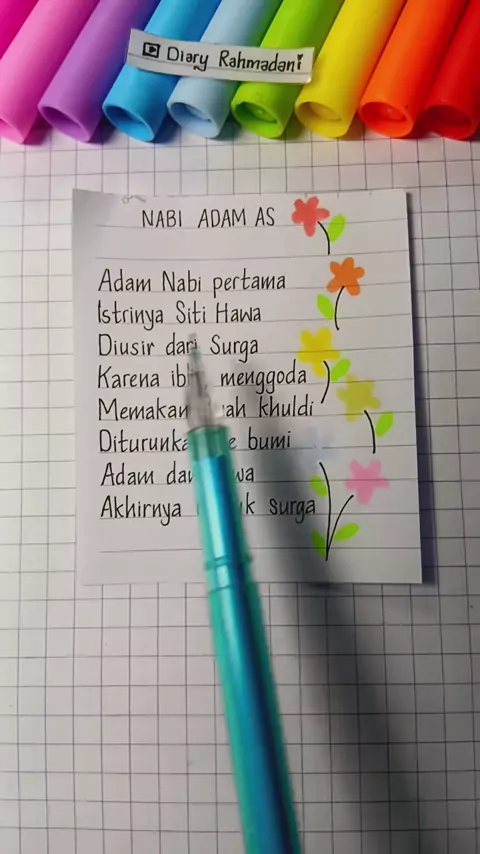 Diary Rahmadani
NABI ADAM AS
Adam Nabi pertama
Istrinya Siti Hawa
Diusir dari Surga
Karena menggoda
Memakan khuldi
bumi
Adam
Akhirnya surga